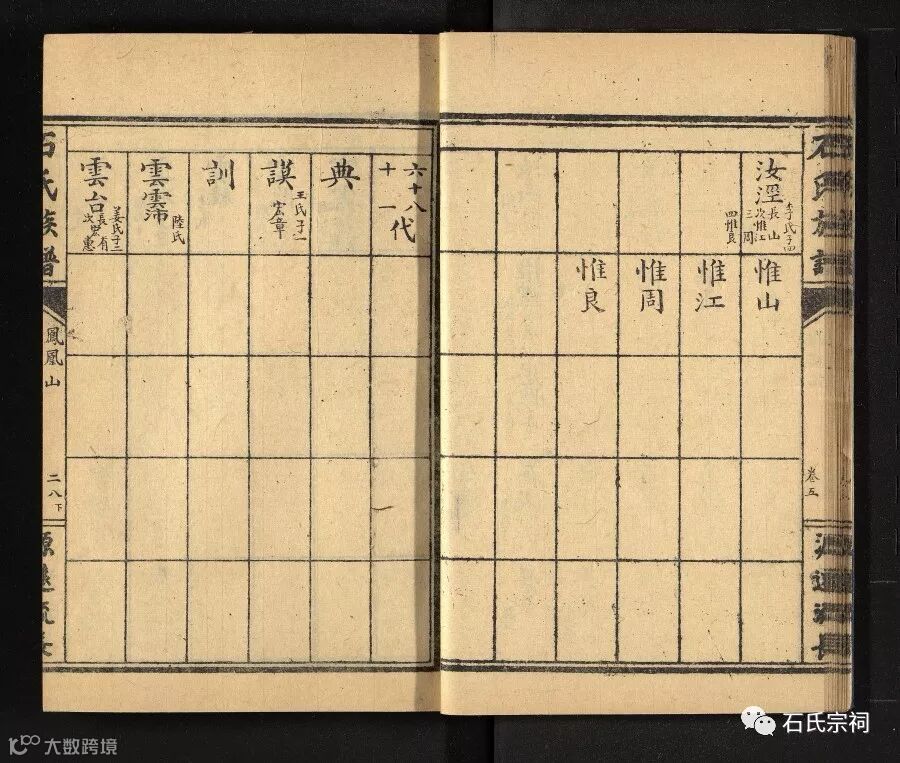 石氏族譜
卷五
源遠流長
汝淫
李氏子四
長山
次惟江
三周
四惟良
惟山
惟江
惟周
惟良
六十八代
十一
典
謨
王氏子一
宏章
訓
雲霈
陸氏
雲台
姜氏子二
長宏有
次惠
石氏族譜
鳳凰山
二八下
源遠流長
石氏宗祠
大数跨境